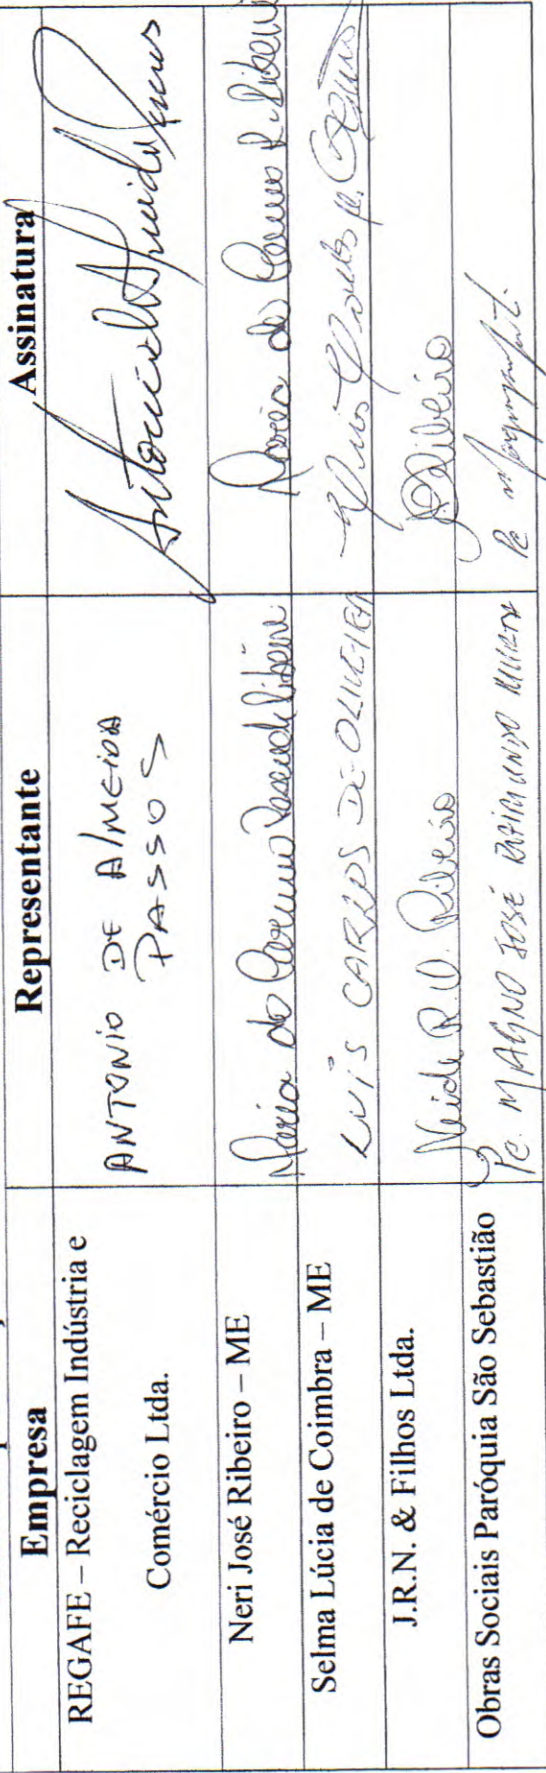 Empresa Representante Assinatura
REGAFE – Reciclagem Indústria e
Comércio Ltda.
ANTONIO DE ALMEIDA
PASSOS
Antonio de Almeida Passos
Neri José Ribeiro – ME Maria do Carmo Ribeiro Maria do Carmo R. Ribeiro
Selma Lúcia de Coimbra – ME LUIS CARLOS DE OLIVEIRA Luis Carlos de
J.R.N. & Filhos Ltda. Neide R. O. Ribeiro Ribeiro
Obras Sociais Paróquia São Sebastião Pe. MAGNO JOSÉ RAIMUNDO Pe